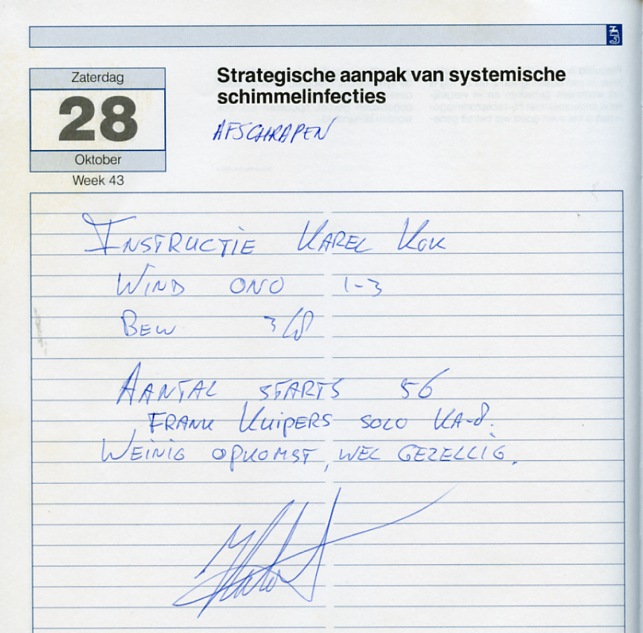 Zaterdag
28
Oktober
Week 43
Strategische aanpak van systemische
schimmelinfecties
AFSCHRAPEN
INSTRUCTIE KAREL KOK
WIND ONO 1-3
BEW 3/8
AANTAL STARTS 56
FRANK KUIPERS SOLO KA-8.
WEINIG OPKOMST, WEL GEZELLIG.